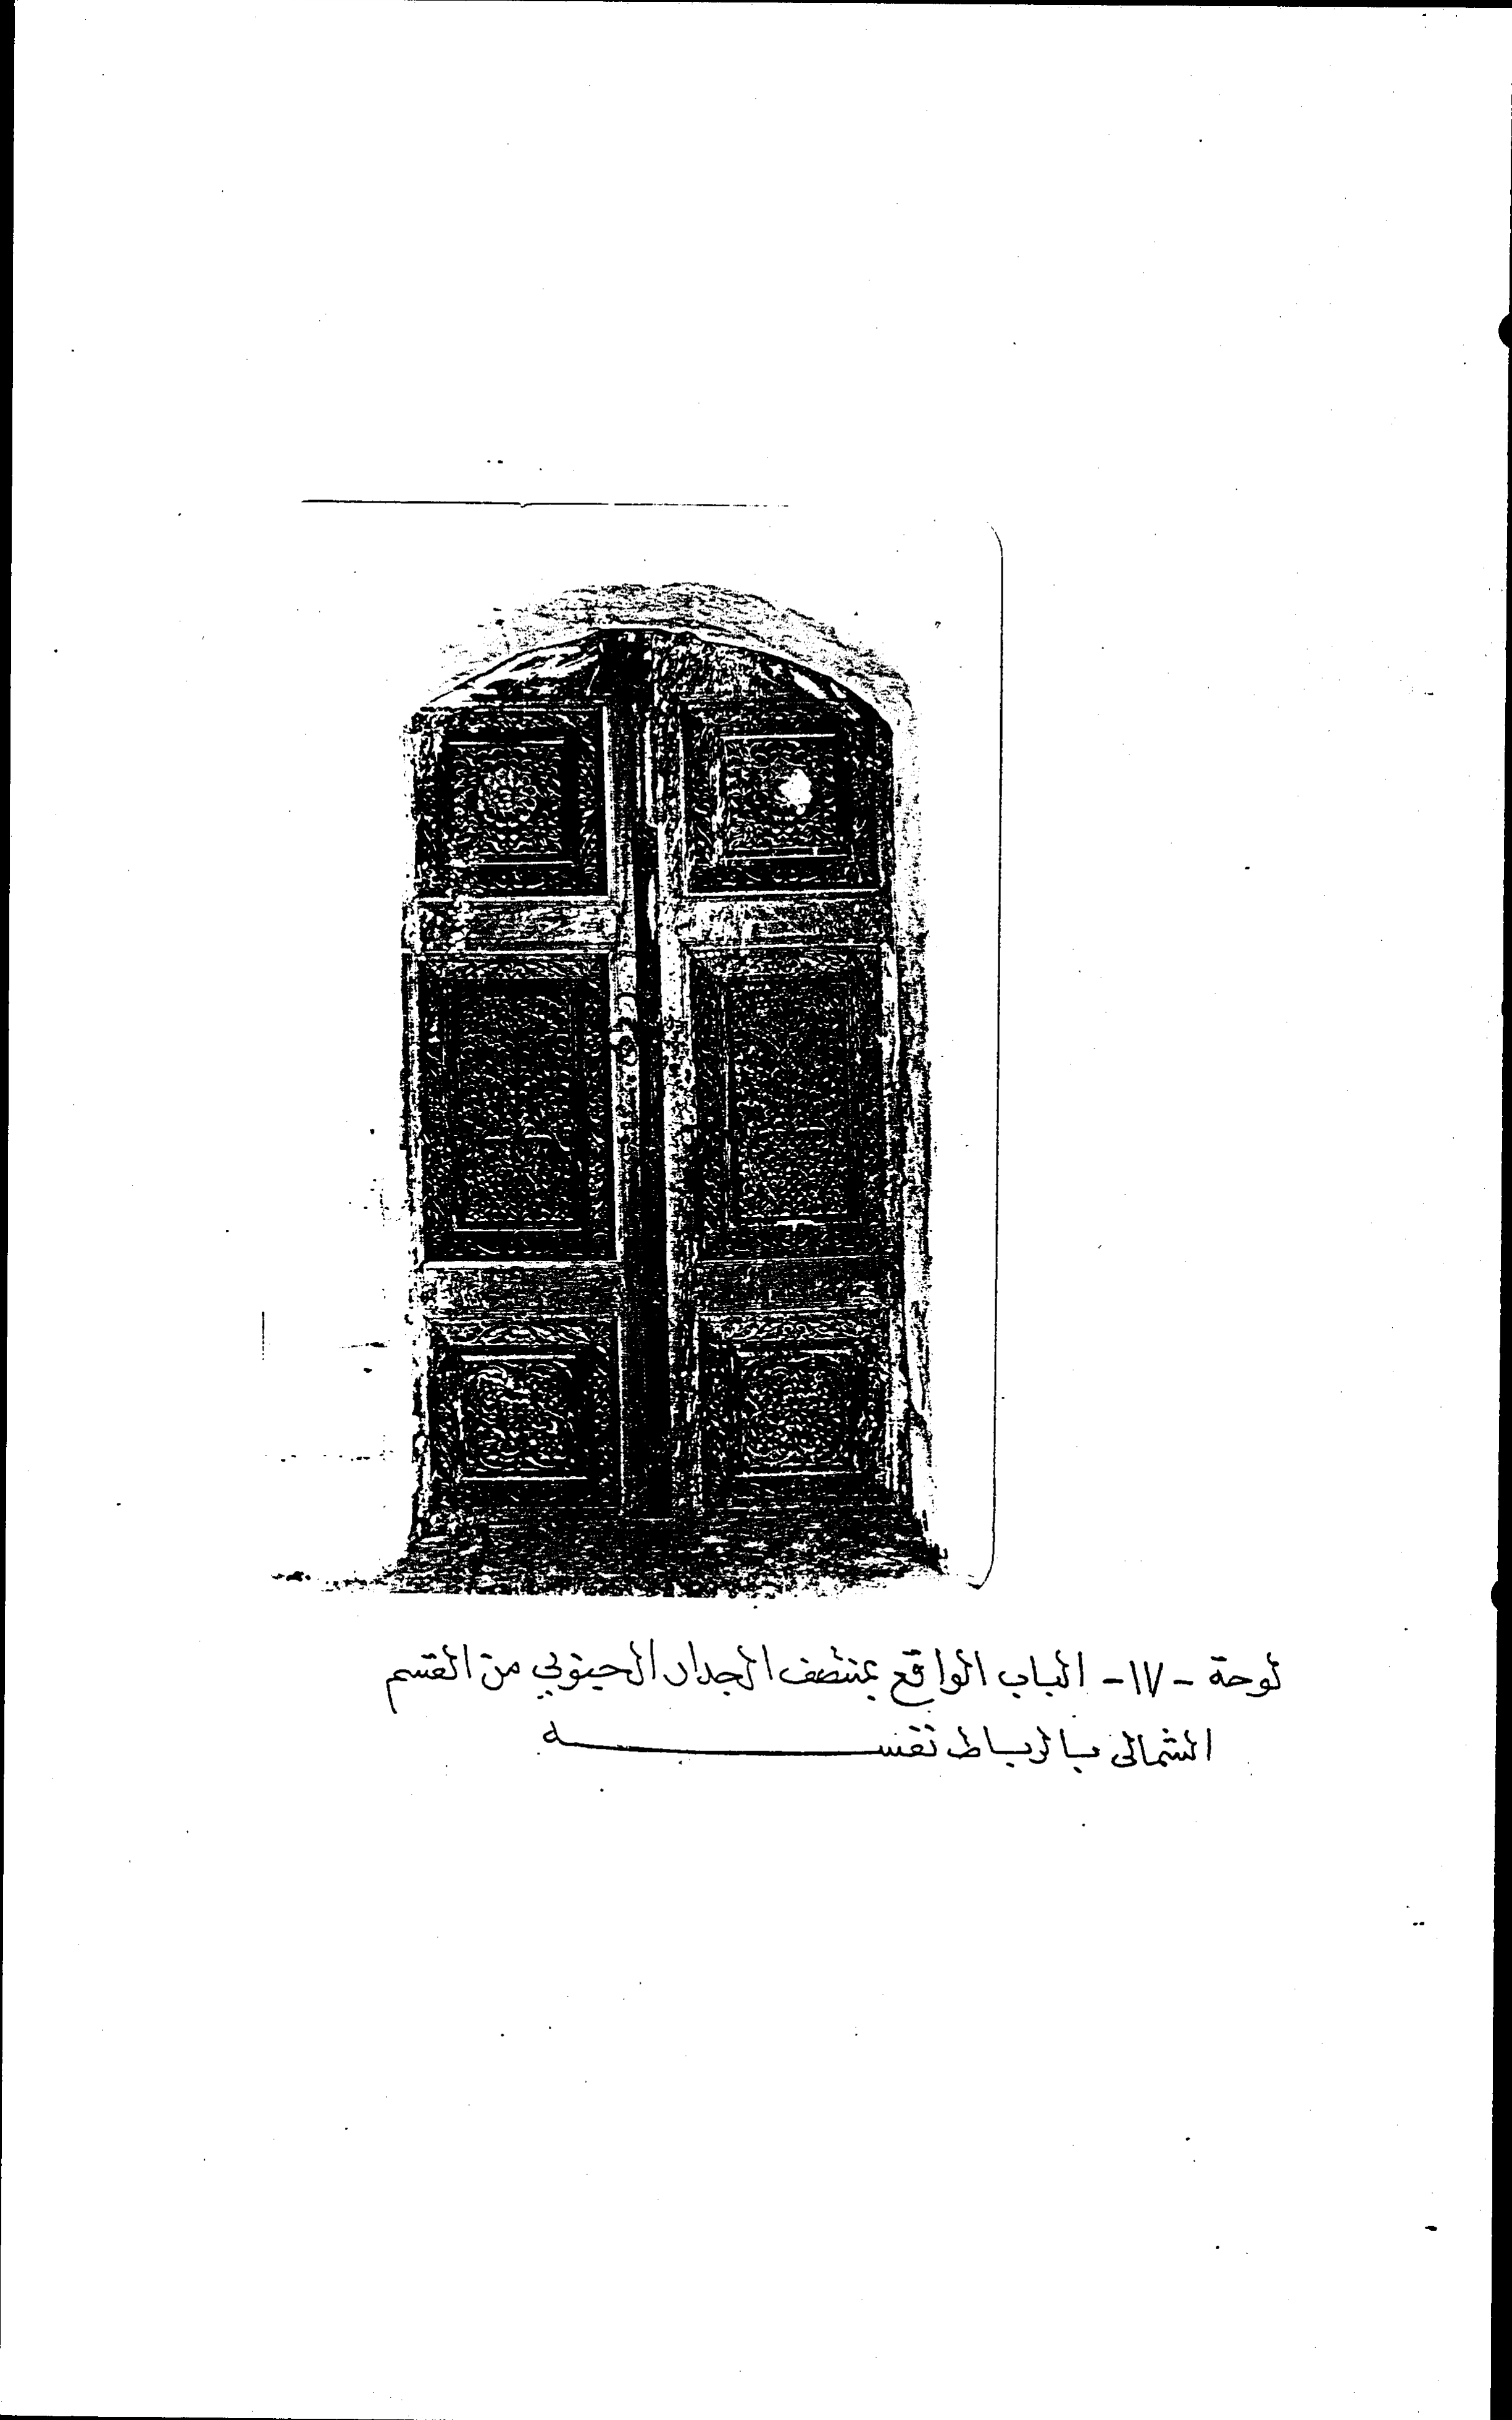 لوحة - ١٧ - الباب الواقع بمنتصف الجدار الجنوبي من القسم
الشمالى بالرباط نفســــــــه